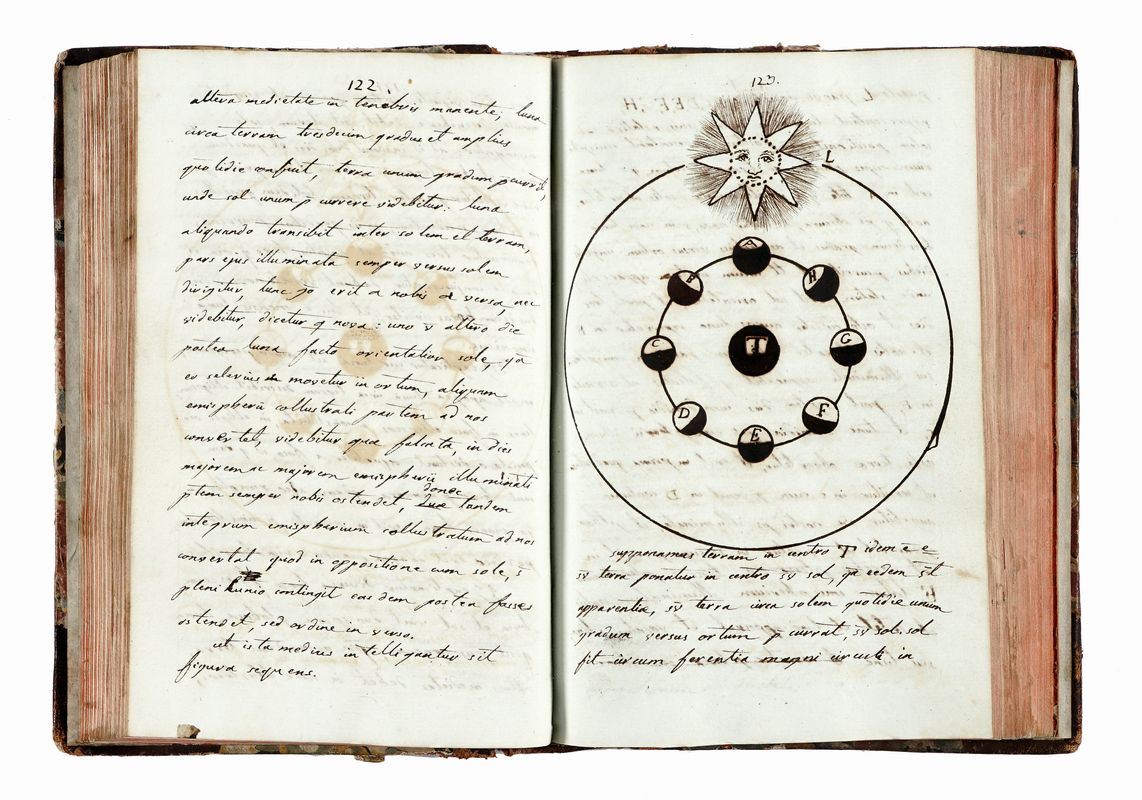 122.
altera medietate in tenebris manente, luna
circa terram tresdecim gradus et amplius
quotidie conficit, terra unum gradum
unde sol unum p currere videbitur. luna
aliquando transibit inter solem et terram,
pars ejus illuminata semper versus solem
dirigitur, tunc erit a nobis a versa, nec
videbitur, dicetur q nova: uno v altero die
postea luna facta orientalior sole,
movetur in ortum, aliquam
emispherii collustrati partem ad nos
convertet, videbitur quae falcata, in dies
majorem ac majorem emispherii illuminati
donec
ptem semper nobis ostendet, tandem
integrum emispherium collustratum ad nos
convertat quod in oppositione cum sole,
pleni lunio contingit eas dem postea fasses
ostendet, sed ordine in verso.
ut ista medius intelligantur sit
figura sequens.
123.
L
A
B
H
C
T
G
D
F
E
supponamus terram in centro T idem
terra ponatur in centro sol,
apparentia, terra circa solem quotidie unum
gradum versus ortum p currat, sol. sol
fit circum ferentia magni circuli in